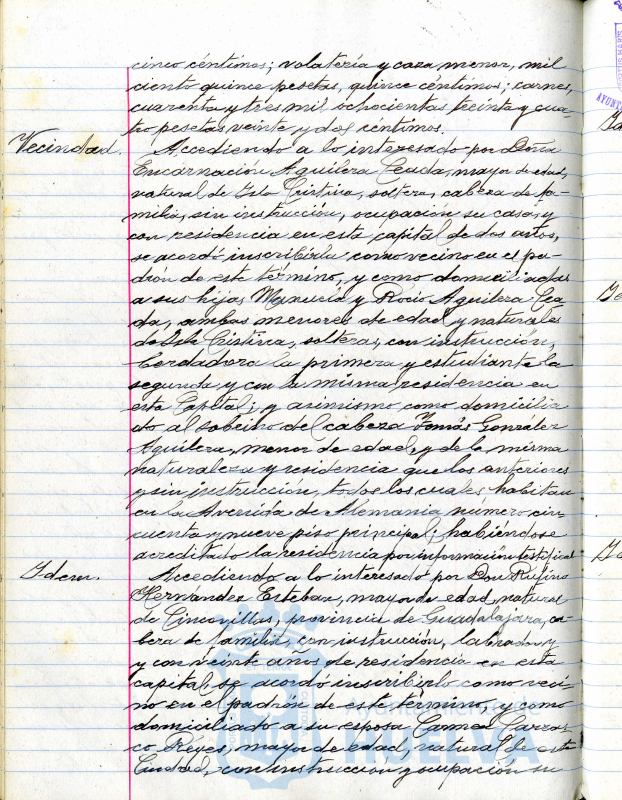 cinco céntimos; volatería y caza menor, mil
ciento quince pesetas, quince céntimos; carnes,
cuarenta y tres mil ochocientas treinta y cua-
tro pesetas veinte y dos céntimos.
Vecindad. Accediendo a lo interesado por Doña
Encarnación Aguilera Ceada, mayor de edad,
natural de Isla Cristina, soltera, cabeza de fa-
milia, sin instrucción, ocupación su casa, y
con residencia en esta capital de dos años,
se acordó inscribirla como vecino en el pa-
drón de este término, y como domiciliadas
a sus hijas Manuela y Rocío Aguilera Cea-
da, ambas menores de edad y naturales
de Isla Cristina, solteras, con instrucción,
bordadora la primera y estudiante la
segunda y con la misma residencia en
esta Capital; y asimismo como domicilia-
do al sobrino del cabeza Tomás González
Aguilera, menor de edad, y de la misma
naturaleza y residencia que los anteriores
y sin instrucción, todos los cuales habitan
en la Avenida de Alemania numero cin-
cuenta y nueve piso principal, habiéndose
acreditado la residencia por información testifical
Idem. Accediendo a lo interesado por Don Rufino
Hernandez Esteban, mayor de edad, natural
de Cincovillas, provincia de Guadalajara, ca-
beza de familia, con instrucción, labrador y
y con veinte años de residencia en esta
capital, se acordó inscribirlo como veci-
no en el padrón de este término, y como
domiciliado a su esposa Carmen Carras-
co Reyes, mayor de edad, natural de esta
Ciudad, con instrucción y ocupación su
HUELVA